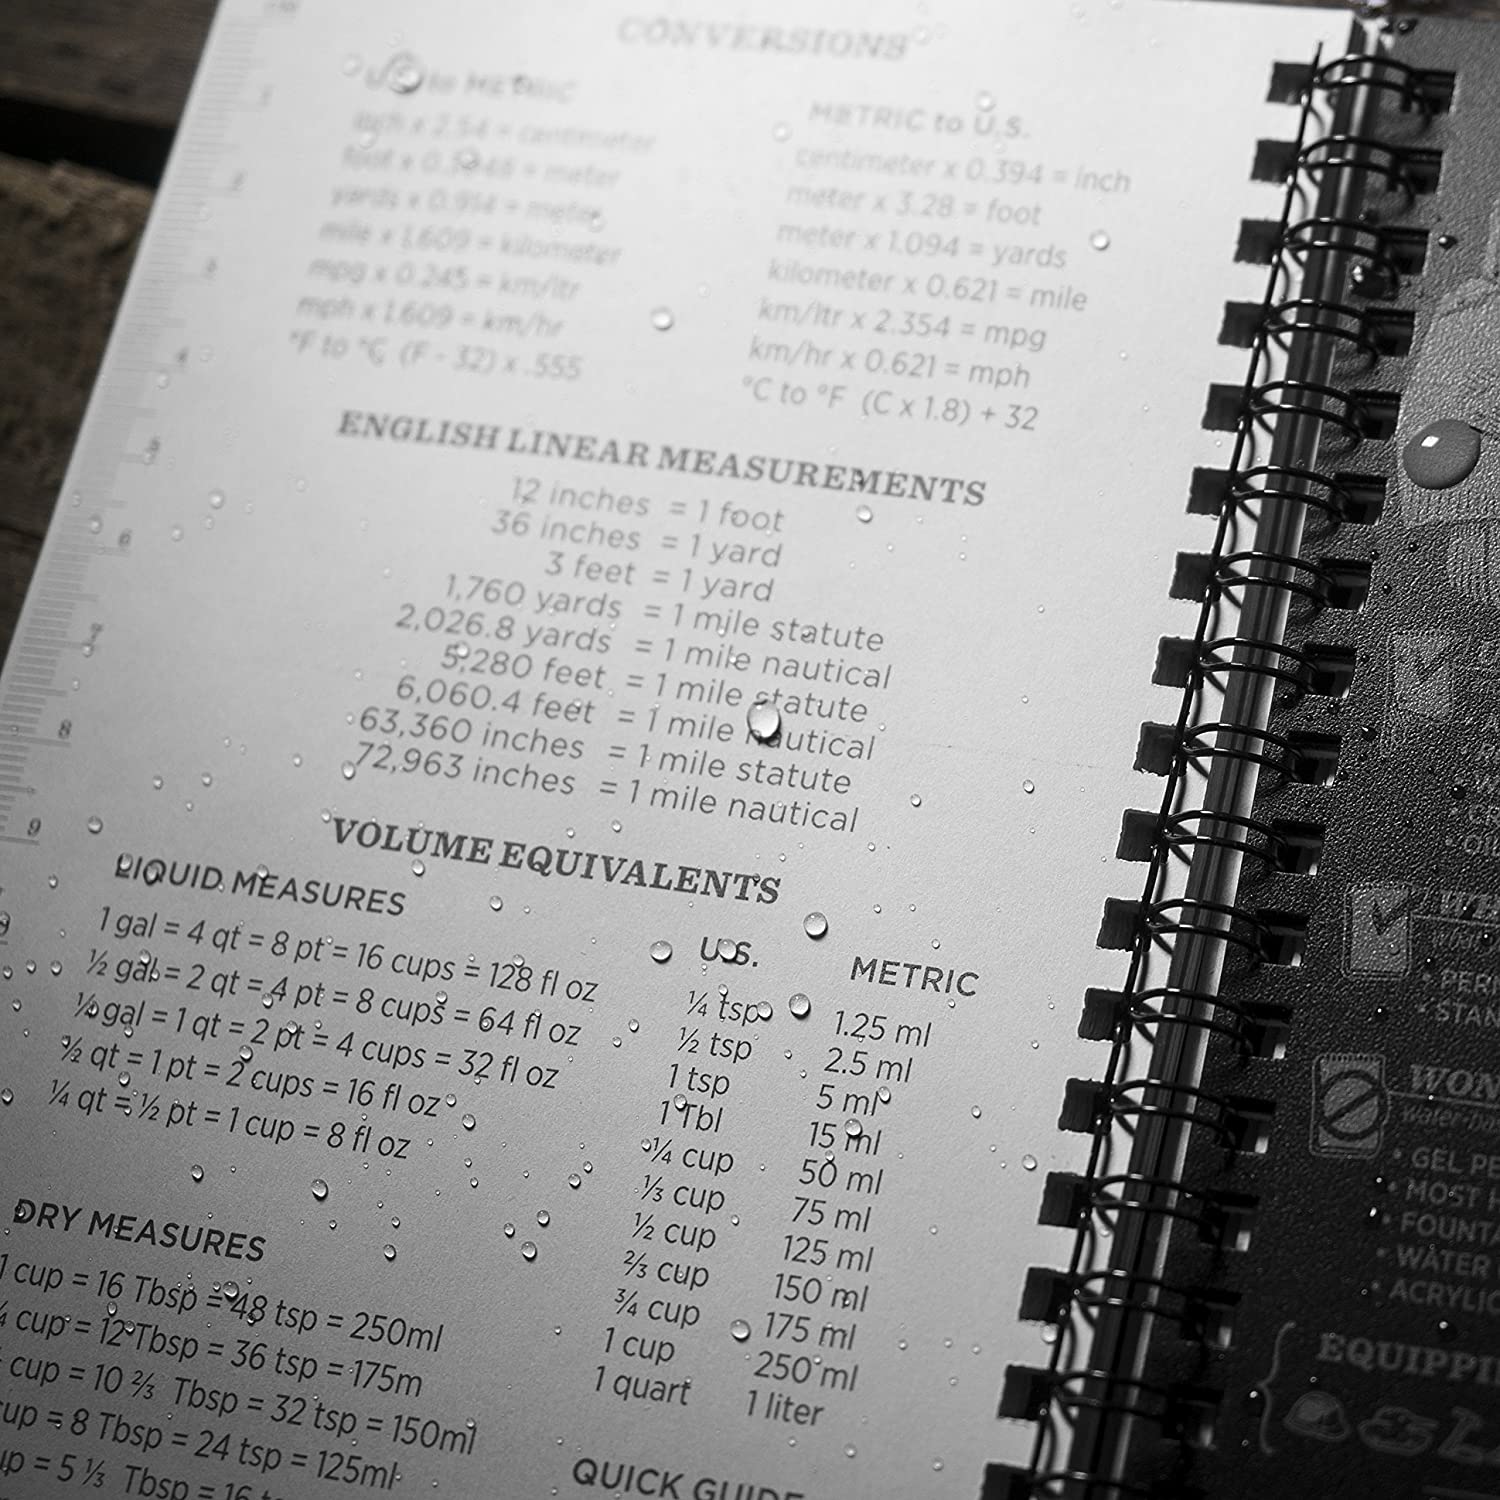 CONVERSIONS
U.S. to METRIC
inch x 2.54 = centimeter
foot x 0.3048 = meter
yards x 0.914 = meter
mile x 1.609 = kilometer
mpg x 0.245 = km/ltr
mph x 1.609 = km/hr
°F to °C (F - 32) x .555
METRIC to U.S.
centimeter x 0.394 = inch
meter x 3.28 = foot
meter x 1.094 = yards
kilometer x 0.621 = mile
km/ltr x 2.354 = mpg
km/hr x 0.621 = mph
°C to °F (C x 1.8) + 32
ENGLISH LINEAR MEASUREMENTS
12 inches = 1 foot
36 inches = 1 yard
3 feet = 1 yard
1,760 yards = 1 mile statute
2,026.8 yards = 1 mile nautical
5,280 feet = 1 mile statute
6,060.4 feet = 1 mile nautical
63,360 inches = 1 mile statute
72,963 inches = 1 mile nautical
VOLUME EQUIVALENTS
LIQUID MEASURES
1 gal = 4 qt = 8 pt = 16 cups = 128 fl oz
½ gal = 2 qt = 4 pt = 8 cups = 64 fl oz
¼ gal = 1 qt = 2 pt = 4 cups = 32 fl oz
½ qt = 1 pt = 2 cups = 16 fl oz
¼ qt = ½ pt = 1 cup = 8 fl oz
U.S. METRIC
¼ tsp 1.25 ml
½ tsp 2.5 ml
1 tsp 5 ml
1 Tbl 15 ml
¼ cup 50 ml
⅓ cup 75 ml
½ cup 125 ml
⅔ cup 150 ml
¾ cup 175 ml
1 cup 250 ml
1 quart 1 liter
DRY MEASURES
1 cup = 16 Tbsp = 48 tsp = 250ml
cup = 12 Tbsp = 36 tsp = 175m
cup = 10 ⅔ Tbsp = 32 tsp = 150ml
cup = 8 Tbsp = 24 tsp = 125ml
= 5 ⅓ Tbsp = 16
QUICK GUIDE
1
2
3
4
5
6
7
8
9
• PER
• STAN
WON
• GEL PE
• MOST H
• FOUNTA
• WATER
• ACRYLIC
EQUIPPI